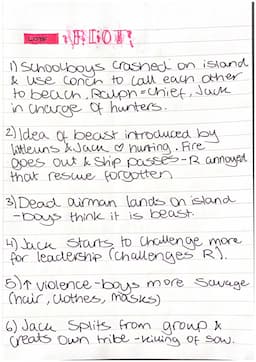 LOTF PLOT
1) Schoolboys crashed on island
& use conch to call each other
to beach. Ralph = chief, Jack
in charge of hunters.
2) Idea of beast introduced by
littleuns & Jack ♡ hunting. Fire
goes out & ship passes - R annoyed
that rescue forgotten
3) Dead airman lands on island
- boys think it is beast.
4) Jack starts to challenge more
for leadership (challenges R).
5) ↑ violence - boys more savage
(hair, clothes, masks)
6) Jack splits from group &
creats own tribe - killing of sow.